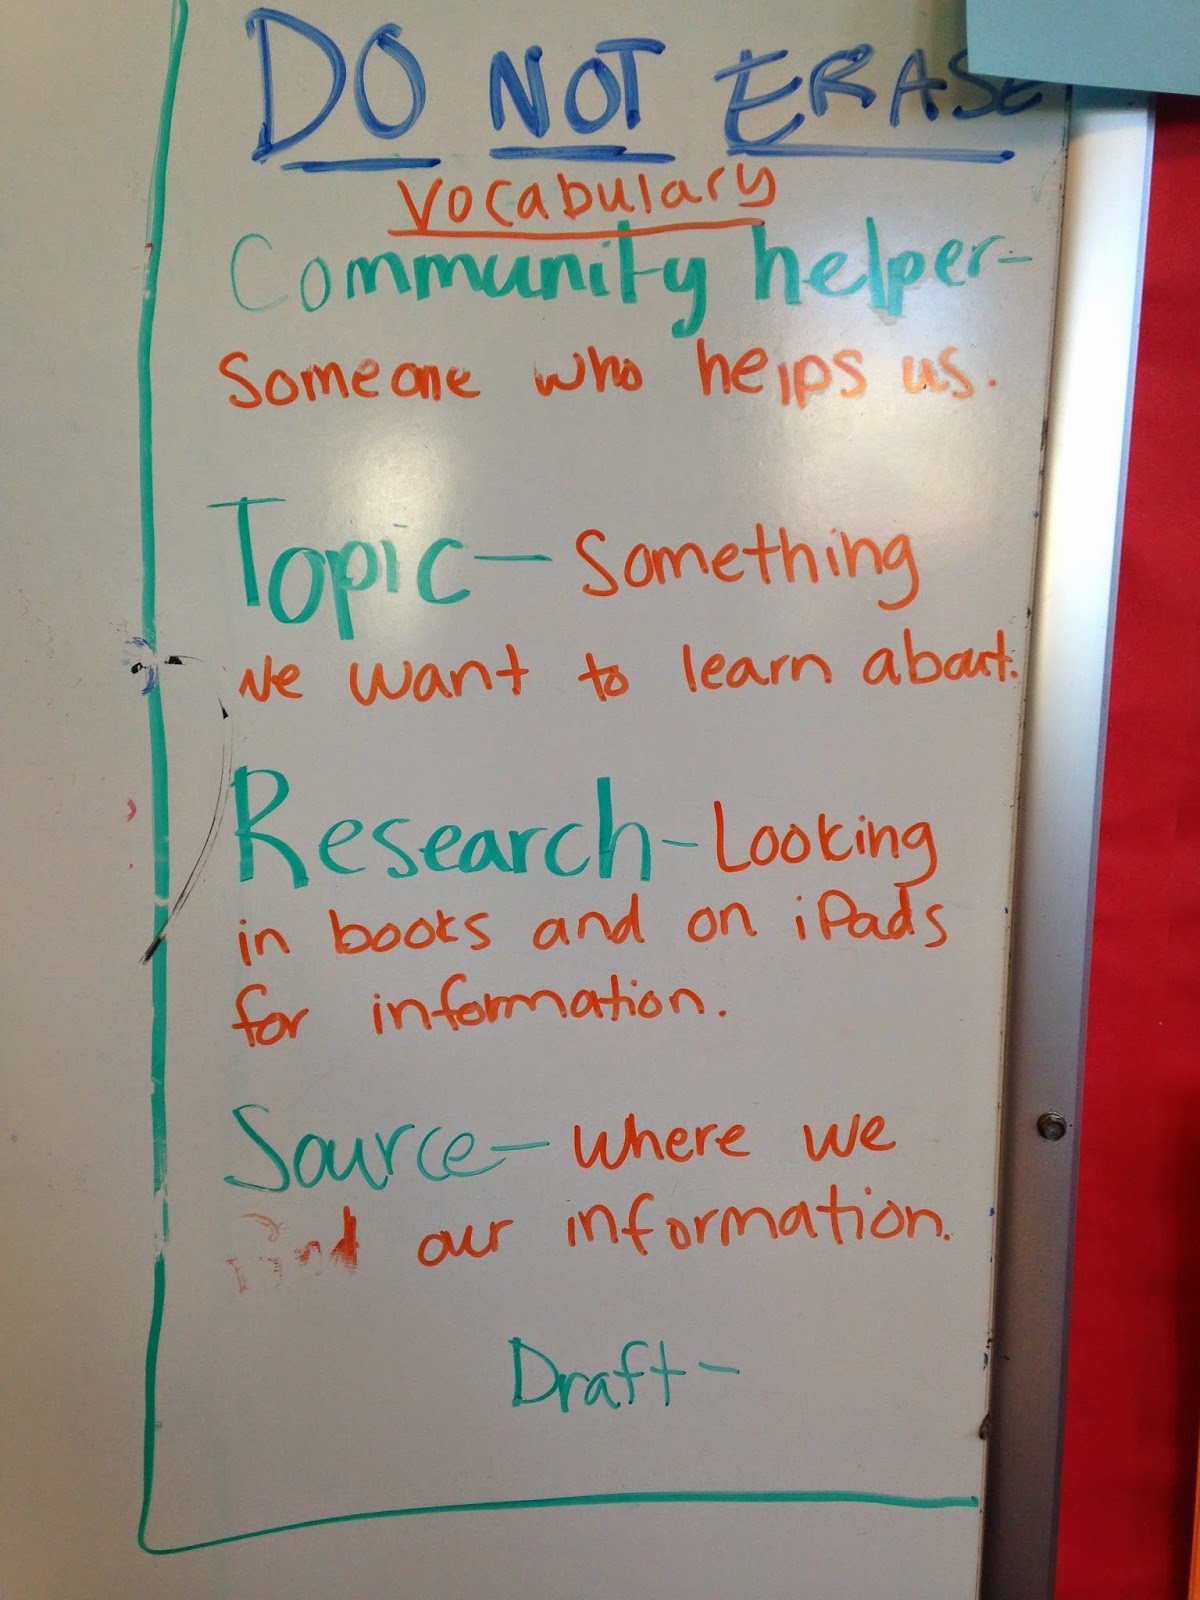 DO NOT ERASE
Vocabulary
Community helper-
Someone who helps us.
Topic- Something
we want to learn about.
Research- Looking
in books and on iPads
for information.
Source- Where we
find our information.
Draft-